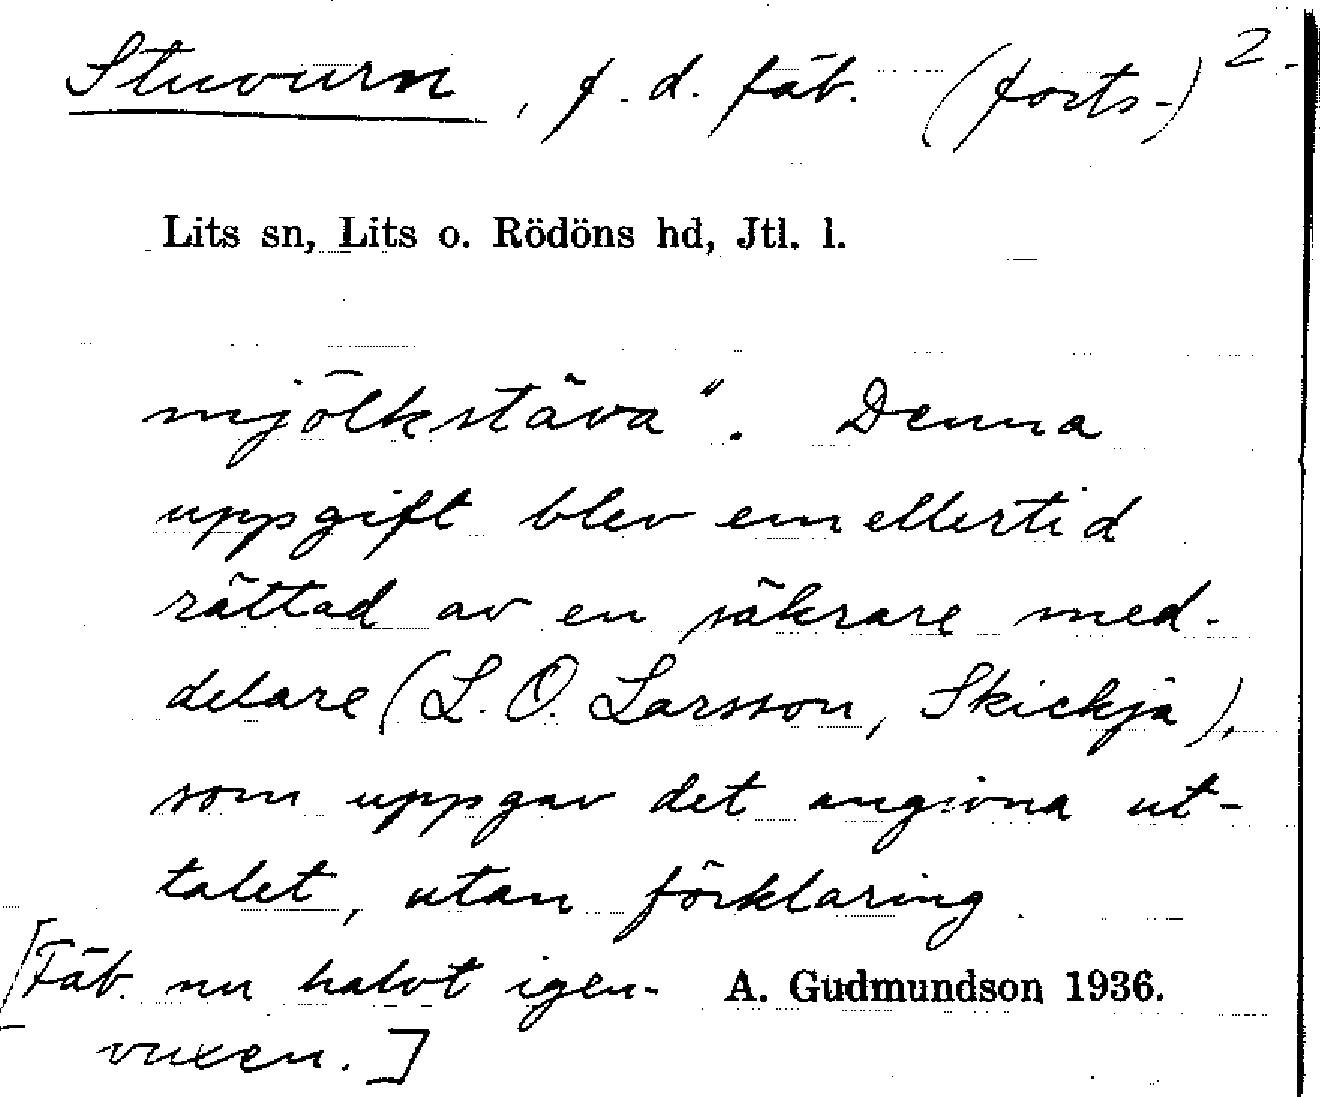 Stuvurn, f. d. fäb. (forts.) 2.
Lits sn, Lits o. Rödöns hd, Jtl. l.
mjölkstäva". Denna
uppgift blev emellertid
rättad av en säkrare med-
delare (L. O. Larsson, Skickja),
som uppgav det angivna ut-
talet, utan förklaring.
[Fäb. nu halvt igen-
vuxen.]
A. Gudmundson 1936.